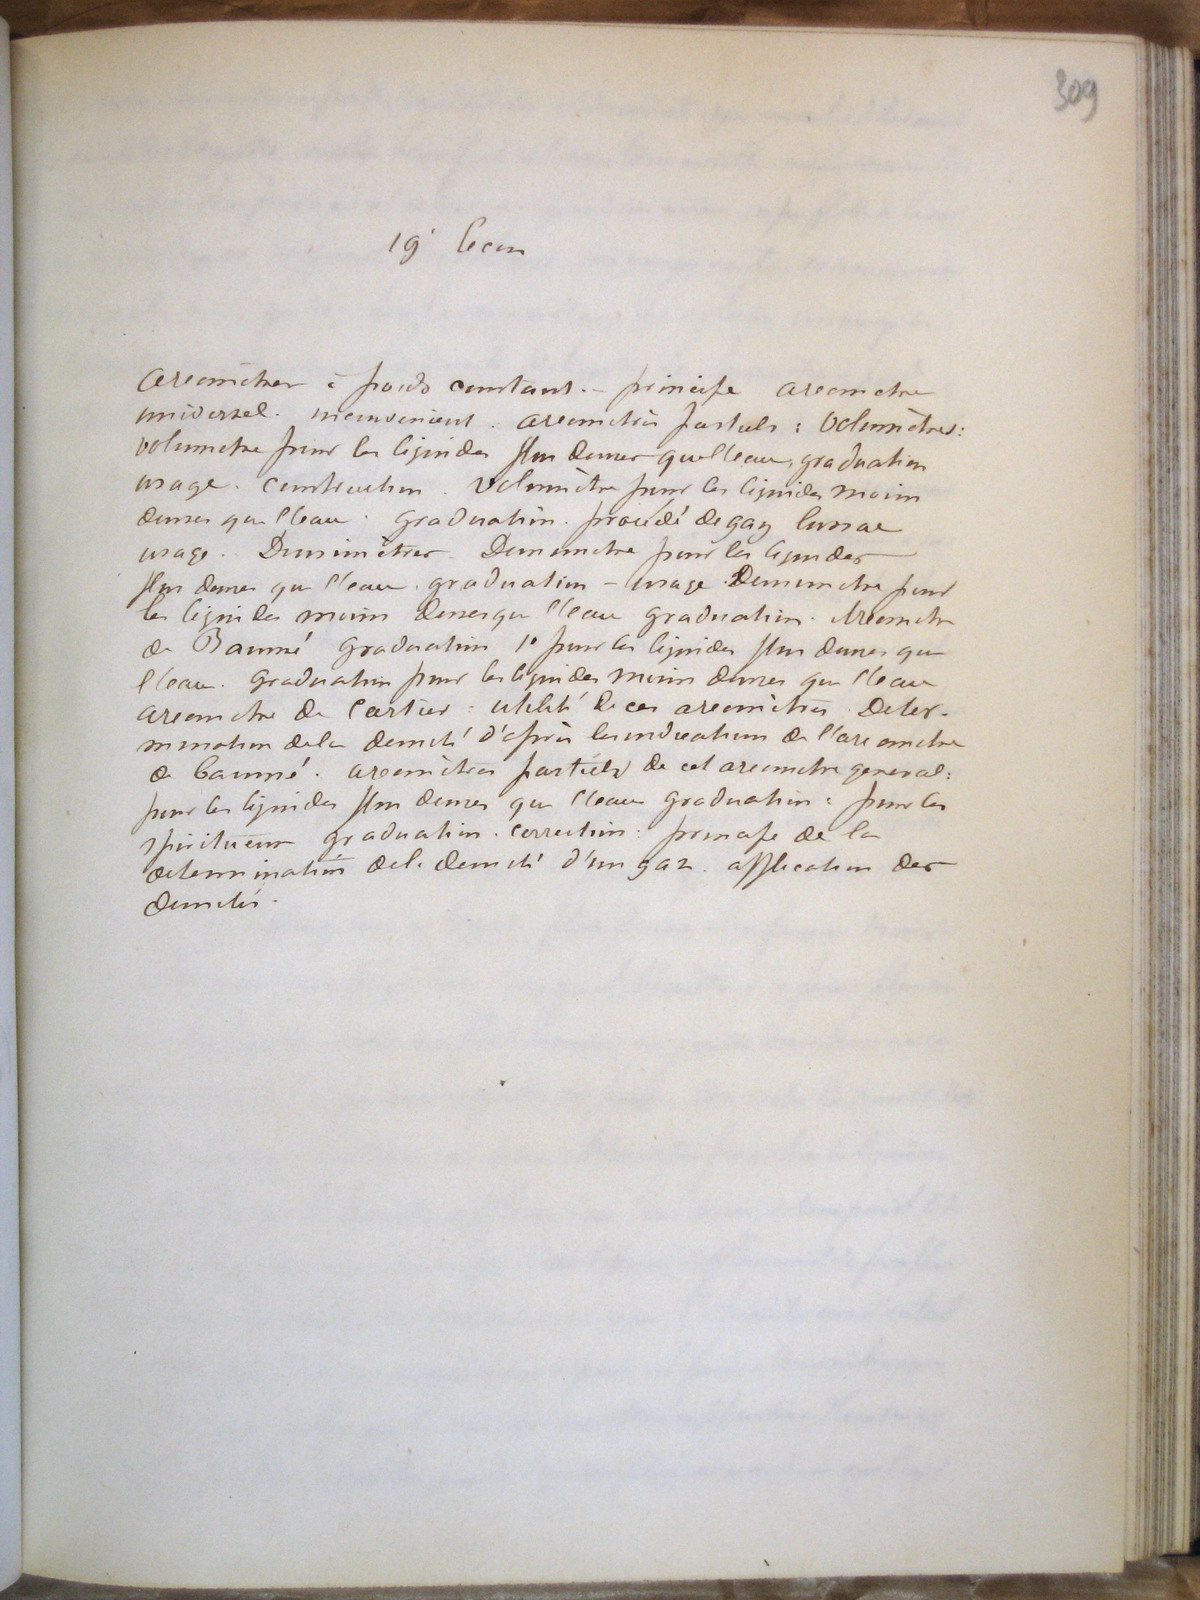 309
19e lecon
Areomètres à poids constant. – principe areometre
universel. inconvenient. areomètres partiels : Volumètres :
volumetre pour les liquides plus denses que l'eau, graduation
usage. construction. Volumètre pour les liquides moins
denses que l'eau. graduation. procédé de gay lussac
usage. Densimètres. Densimetre pour les liquides
plus denses que l'eau. graduation – usage. Densimetre pour
les liquides moins denses que l'eau graduation. Areometre
de Baumé graduation 1º pour les liquides plus denses que
l'eau. graduation pour les liquides moins denses que l'eau
areometre de Cartier : utilité de ces areomètres. Deter-
mination de la densité d'après les indications de l'areometre
de baumé. areomètres partiels de cet areometre general :
pour les liquides plus denses que l'eau graduation : pour les
spiritueux graduation. correction : principe de la
determination de la densité d'un gaz. application des
densités.